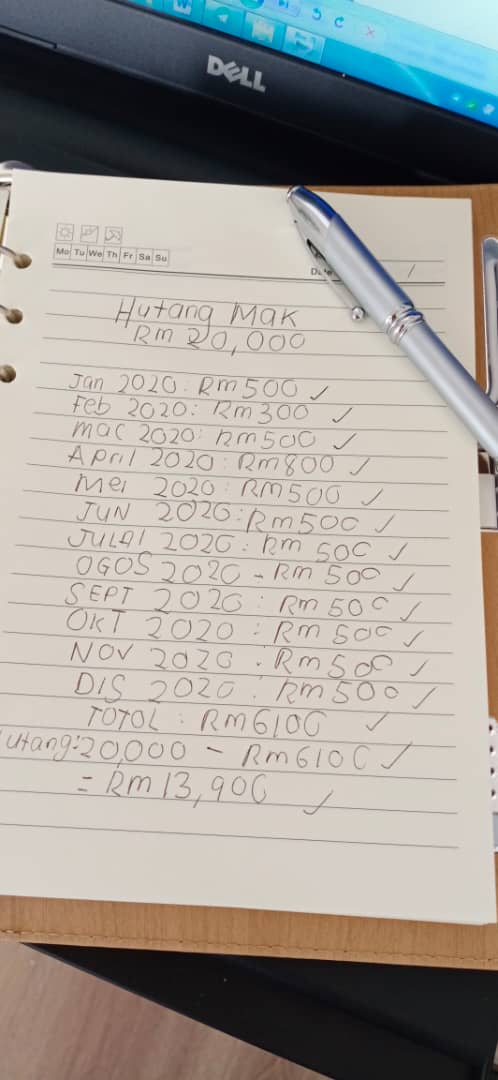 DELL
Mo Tu We Th Fr Sa Su
Hutang Mak
Rm 20,000
Jan 2020: Rm500 ✓
Feb 2020: Rm300 ✓
Mac 2020: Rm500 ✓
April 2020: Rm800 ✓
Mei 2020: RM500 ✓
JUN 2020: Rm500 ✓
JULAI 2020: Rm 500 ✓
OGOS 2020 - Rm 500 ✓
SEPT 2020: Rm 500 ✓
OKT 2020: Rm 500 ✓
NOV 2020: Rm500 ✓
DIS 2020: Rm500 ✓
TOTOL: RM6100 ✓
utang: 20,000 - RM6100 ✓
= Rm 13,900 ✓